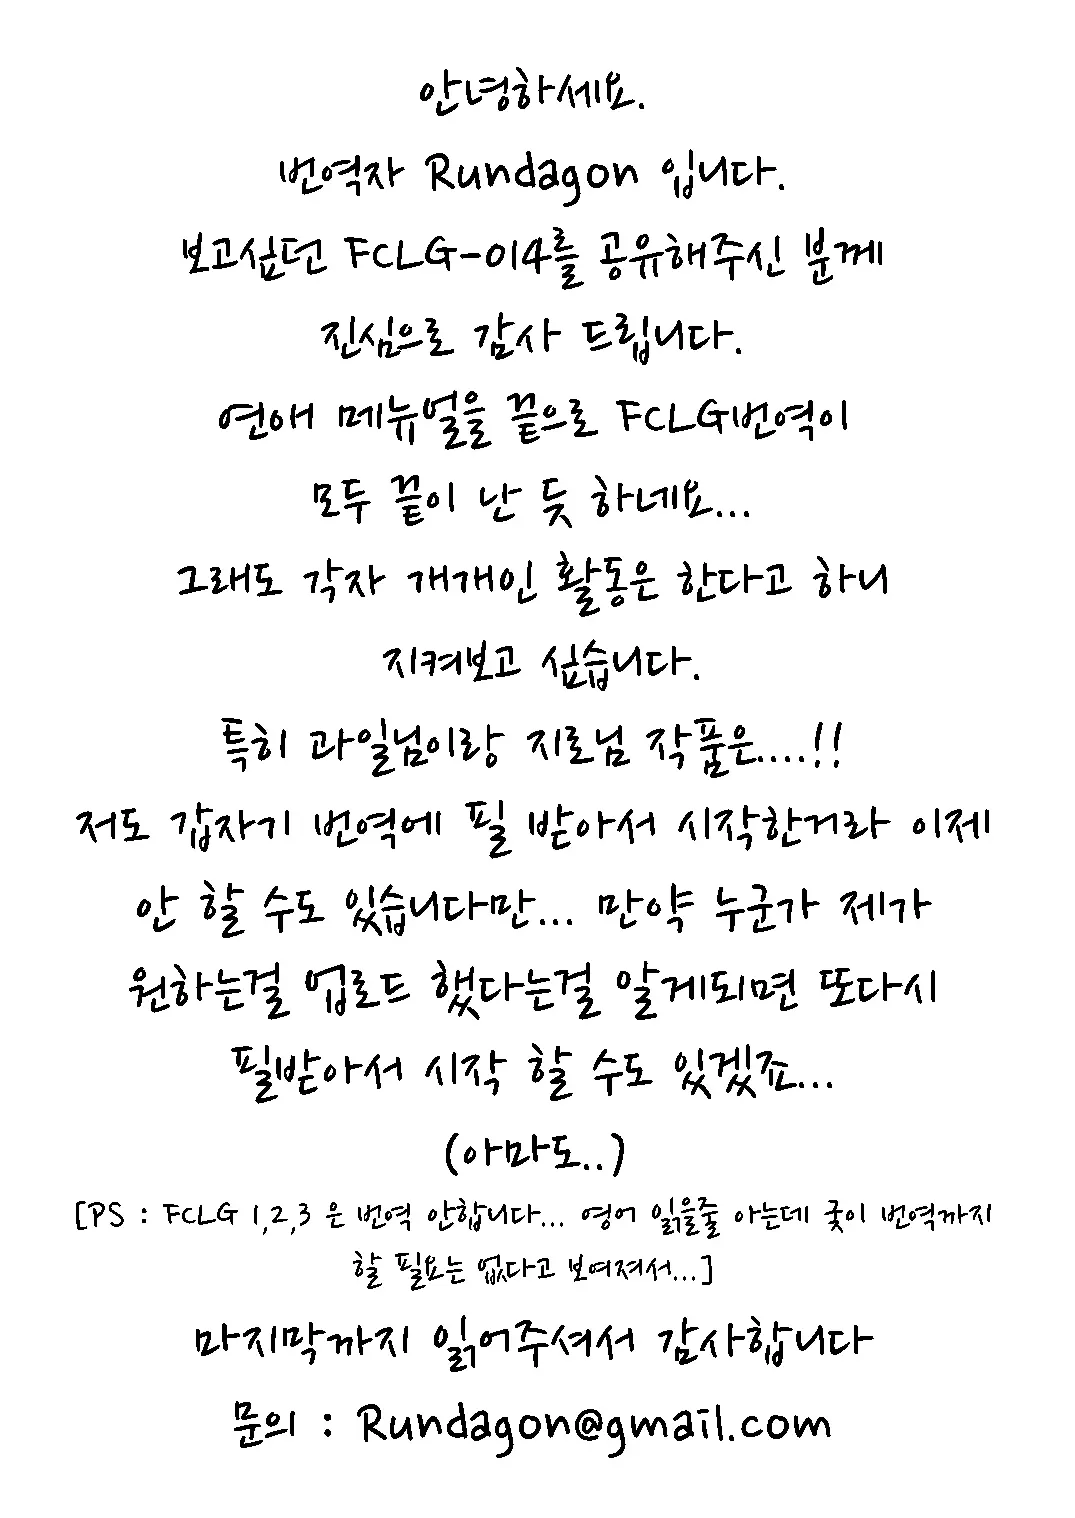 안녕하세요.
번역자 Rundagon 입니다.
보고싶던 FCLG-014를 공유해주신 분께
진심으로 감사 드립니다.
연애 메뉴얼을 끝으로 FCLG번역이
모두 끝이 난 듯 하네요...
그래도 각자 개개인 활동은 한다고 하니
지켜보고 싶습니다.
특히 과일님이랑 지로님 작품은....!!
저도 갑자기 번역에 필 받아서 시작한거라 이제
안 할 수도 있습니다만... 만약 누군가 제가
원하는걸 업로드 했다는걸 알게되면 또다시
필받아서 시작 할 수도 있겠죠...
(아마도..)
[PS : FCLG 1,2,3 은 번역 안합니다... 영어 읽을줄 아는데 굳이 번역까지
할 필요는 없다고 보여져서...]
마지막까지 읽어주셔서 감사합니다
문의 : Rundagon@gmail.com